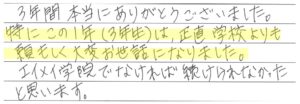 3年間本当にありがとうございました。
特にこの1年(3年生)は、正直学校よりも
頼もしく大変お世話になりました。
エイメイ学院でなければ続けられなかった
と思います。